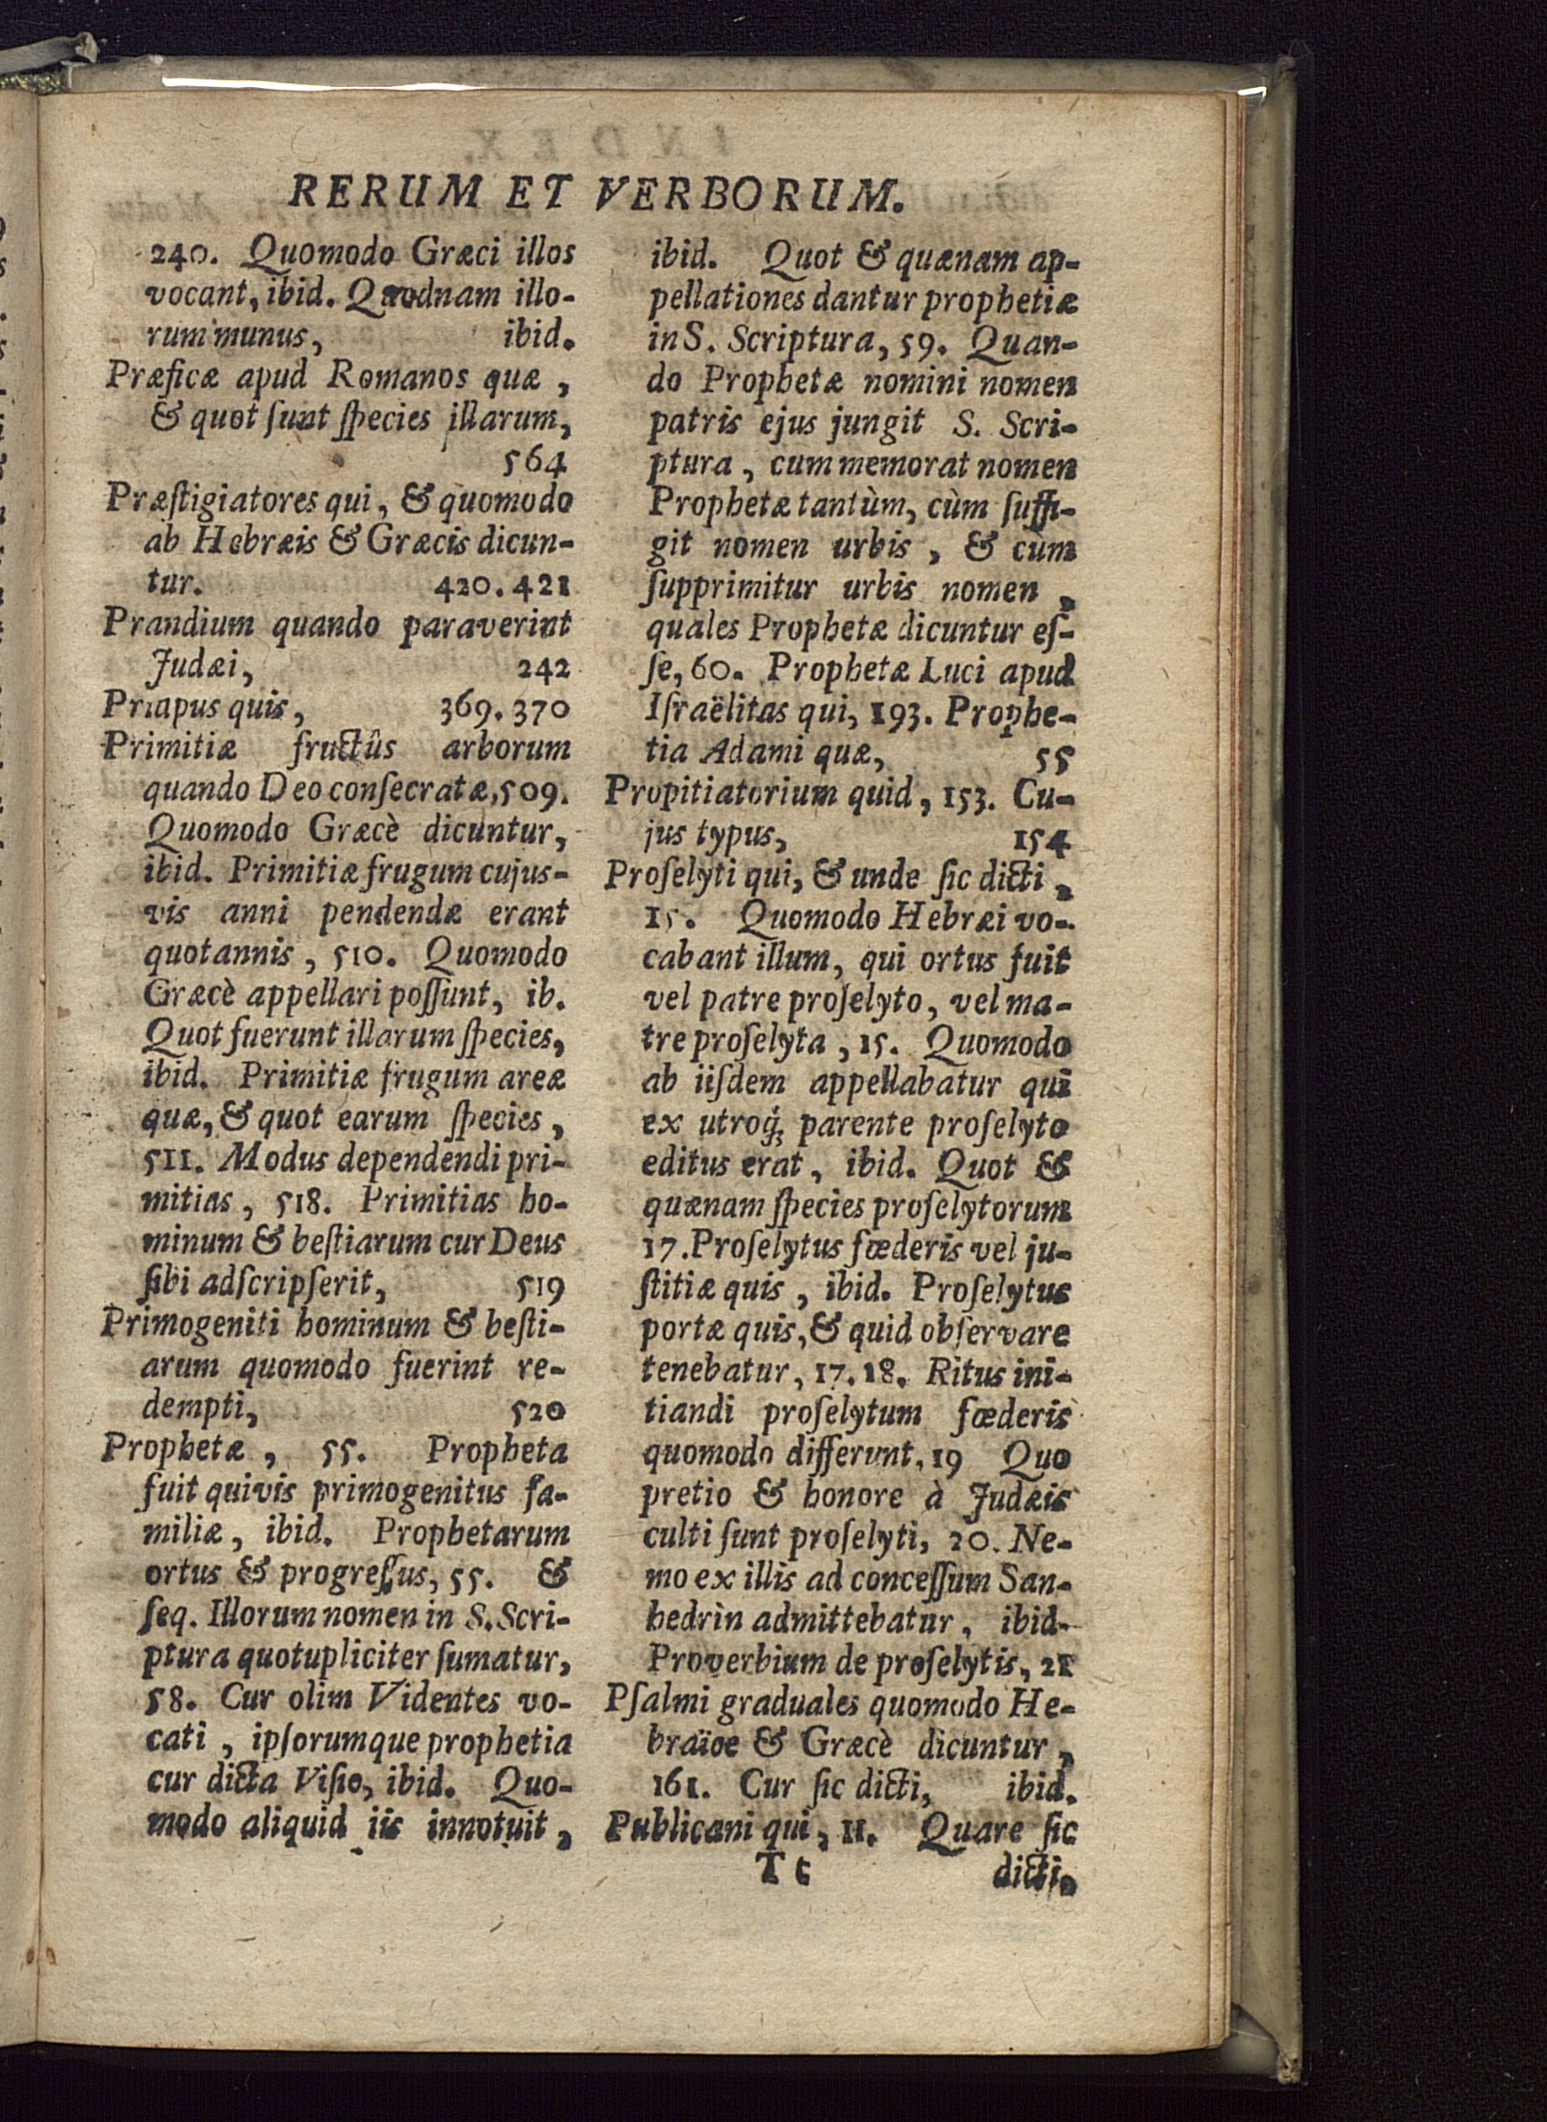 RERUM ET VERBORUM.
240. Quomodo Græci illos
vocant, ibid. Quodnam illo-
rum munus, ibid.
Præficæ apud Romanos quæ,
& quot ſunt ſpecies illarum,
564
Præſtigiatores qui, & quomodo
ab Hebræis & Græcis dicun-
tur. 420. 421
Prandium quando paraverint
Judæi, 242
Priapus quis, 369. 370
Primitiæ fructûs arborum
quando Deo conſecratæ, 509.
Quomodo Græcè dicuntur,
ibid. Primitiæ frugum cujus-
vis anni pendendæ erant
quotannis, 510. Quomodo
Græcè appellari poſſunt, ib.
Quot fuerunt illarum ſpecies,
ibid. Primitiæ frugum areæ
quæ, & quot earum ſpecies,
511. Modus dependendi pri-
mitias, 518. Primitias ho-
minum & beſtiarum cur Deus
ſibi adſcripſerit, 519
Primogeniti hominum & beſti-
arum quomodo fuerint re-
dempti, 520
Prophetæ, 55. Propheta
fuit quivis primogenitus fa-
miliæ, ibid. Prophetarum
ortus & progreſſus, 55. &
ſeq. Illorum nomen in S. Scri-
ptura quotupliciter ſumatur,
58. Cur olim Videntes vo-
cati, ipſorumque prophetia
cur dicta Viſio, ibid. Quo-
modo aliquid iis innotuit,
ibid. Quot & quænam ap-
pellationes dantur prophetiæ
in S. Scriptura, 59. Quan-
do Prophetæ nomini nomen
patris ejus jungit S. Scri-
ptura, cum memorat nomen
Prophetæ tantùm, cùm ſuffi-
git nomen urbis, & cùm
ſupprimitur urbis nomen,
quales Prophetæ dicuntur eſ-
ſe, 60. Prophetæ Luci apud
Iſraëlitas qui, 193. Prophe-
tia Adami quæ, 55
Propitiatorium quid, 153. Cu-
jus typus, 154
Proſelyti qui, & unde ſic dicti,
15. Quomodo Hebræi vo-
cabant illum, qui ortus fuit
vel patre proſelyto, vel ma-
tre proſelyta, 15. Quomodo
ab iiſdem appellabatur qui
ex utroq́; parente proſelyto
editus erat, ibid. Quot &
quænam ſpecies proſelytorum
17. Proſelytus fœderis vel ju-
ſtitiæ quis, ibid. Proſelytus
portæ quis, & quid obſervare
tenebatur, 17. 18. Ritus ini-
tiandi proſelytum fœderis
quomodo differunt, 19 Quo
pretio & honore à Judæis
culti ſunt proſelyti, 20. Ne-
mo ex illis ad conceſſum San-
hedrìn admittebatur, ibid.
Proverbium de proſelytis, 21
Pſalmi graduales quomodo He-
braïce & Græcè dicuntur,
161. Cur ſic dicti, ibid.
Publicani qui, 11. Quare ſic
T t dicti,